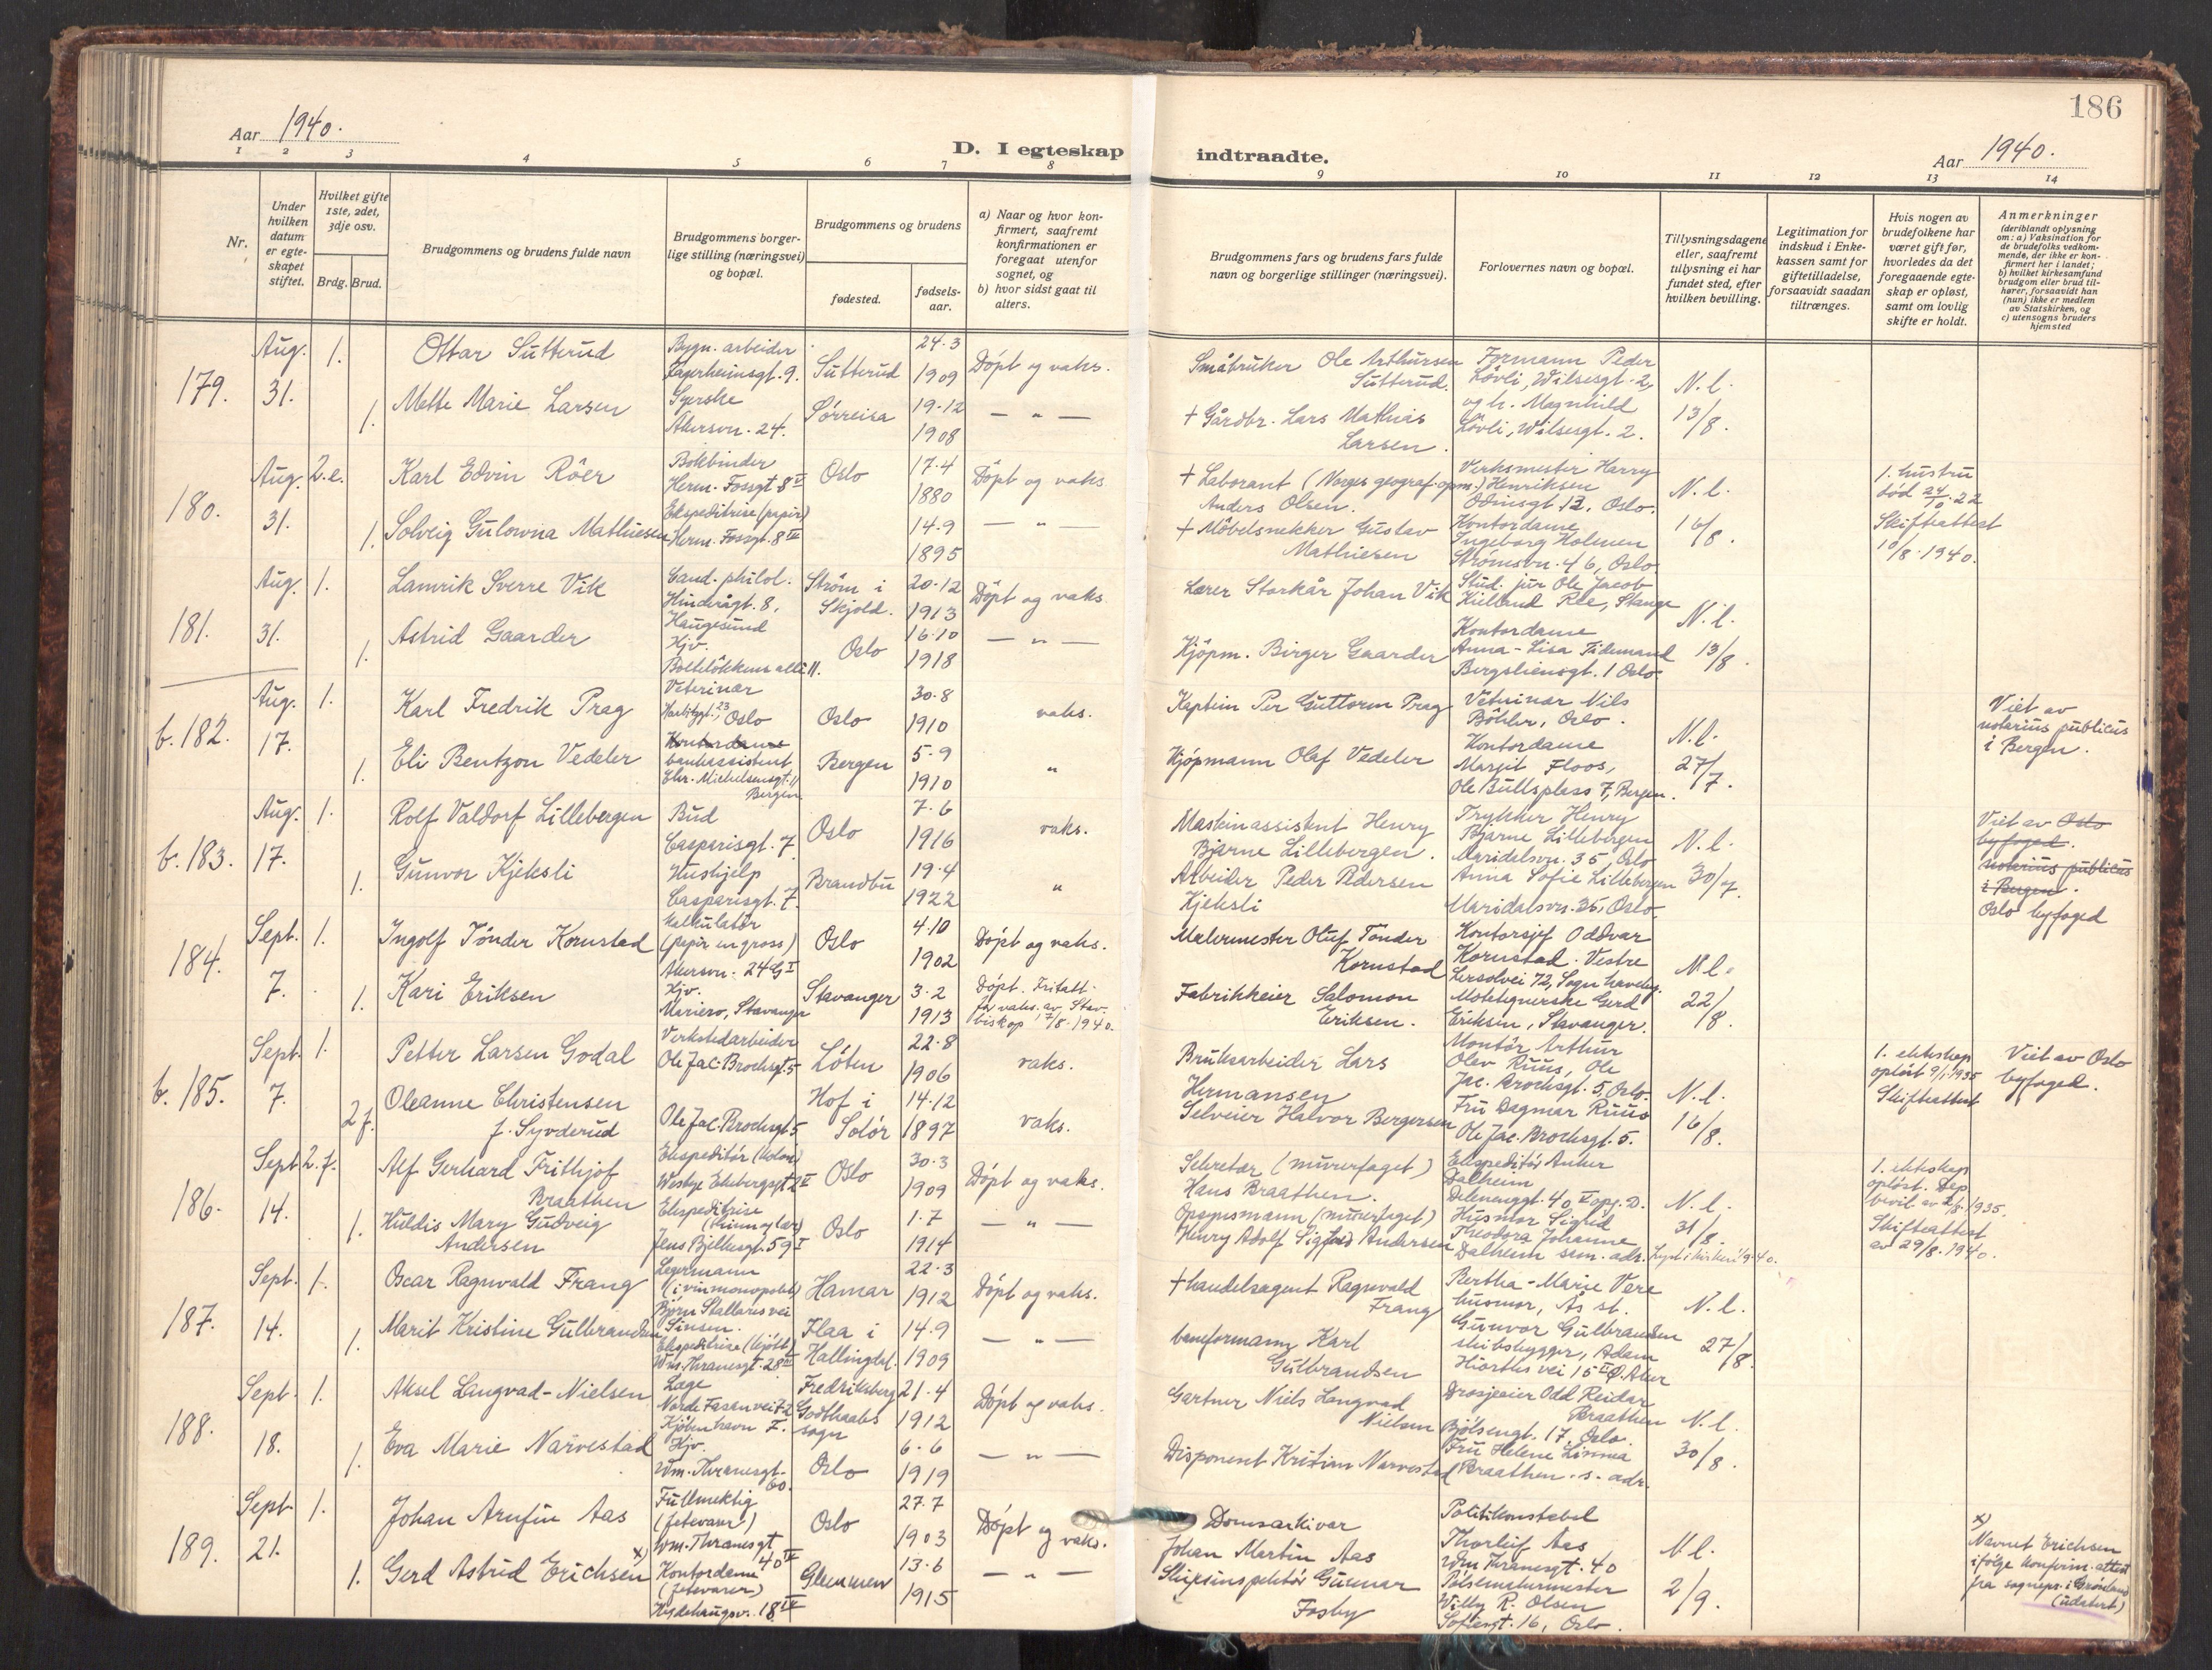 186
Aar 1940.
D. I egteskap indtraadte.
Aar 1940.
1 2 3 4 5 6 7 8 9 10 11 12 13 14
Nr.
Under hvilken datum er egteskapet stiftet.
Hvilket gifte 1ste, 2det, 3dje osv.
Brdg. Brud.
Brudgommens og brudens fulde navn
Brudgommens borgerlige stilling (næringsvei) og bopæl.
Brudgommens og brudens
fødested.
fødselsaar.
a) Naar og hvor konfirmert, saafremt konfirmationen er foregaat utenfor sognet, og
b) hvor sidst gaat til alters.
Brudgommens fars og brudens fars fulde navn og borgerlige stillinger (næringsvei).
Forlovernes navn og bopæl.
Tillysningsdagene eller, saafremt tillysning ei har fundet sted, efter hvilken bevilling.
Legitimation for indskud i Enkekassen samt for giftetilladelse, forsaavidt saadan tiltrænges.
Hvis nogen av brudefolkene har været gift før, hvorledes da det foregaaende egteskap er opløst, samt om lovlig skifte er holdt.
Anmerkninger
(deriblandt oplysning om: a) Vaksination for de brudefolks vedkommende, der ikke er konfirmert her i landet; b) hvilket kirkesamfund brudgom eller brud tilhører, forsaavidt han (hun) ikke er medlem av Statskirken, og c) utensogns bruders hjemsted
179. Aug. 31. 1. Ottar Sutterud
Bygn. arbeider Fagerheimsgt. 9. Sutterud 24.3 1909 Döpt og vaks.
Småbruker Ole Arthursen Sutterud.
Formann Peder Lövli, Wilsesgt. 2, N.l. 13/8.
1. Mette Marie Larsen
Syerske Akersvn. 24. Sørreisa 19.12 1908 — " —
+ Gårdbr. Lars Mathias Larsen.
og h. Magnhild Lövli, Wilsesgt. 2.
180. Aug. 31. 2.e. Karl Edvin Röer
Bokbinder Herm. Fossgt 8 IV Oslo 17.4 1880 Döpt og vaks
+ Laborant (Norges geograf. opm.) Anders Olsen.
Verksmester Harry Henriksen Odinsgt 12. Oslo. N.l. 16/8.
1. hustru död 24/10.22 Skifteattest 10/8.1940.
1. Solveig Gulowna Mathiesen
Ekspeditrise (papir) Herm. Fossgt. 8 IV 14.9 1895 — " —
+ Möbelsnekker Gustav Mathiesen
Kontordame Ingeborg Holmen Strømsvn. 46, Oslo.
181. Aug. 31. 1. Lamrik Sverre Vik
Cand. philol. Hinderågt. 8, Haugesund Ström i Skjold. 20.12 1913 Döpt og vaks.
Lærer Storkår Johan Vik
Stud. jur Ole Jacob Kielland Ree, Stange N.l. 13/8.
1. Astrid Gaarder
Hjv. Bolteløkkens allé 11. Oslo 16.10 1918 — " —
Kjöpm. Birger Gaarder
Kontordame Anna-Lisa Tidemand Bergsliensgt. 1 Oslo.
b. 182. Aug. 17. 1. Karl Fredrik Prag
Veterinær Harbitzgt. 23 Oslo Oslo 30.8 1910 vaks.
Kaptein Per Guttorm Prag
Veterinær Nils Böhler, Oslo. N.l. 27/7.
Viet av notarius publicus i Bergen.
1. Eli Bentzon Vedeler
Kontordame bankassistent Chr. Michelsensgt. 11 Bergen Bergen 5.9 1910 "
Kjöpmann Olaf Vedeler
Kontordame Margit Floos, Ole Bullsplass 7, Bergen.
b. 183. Aug. 17. 1. Rolf Valdorf Lillebergen
Bud Casparisgt. 7 Oslo 7.6 1916 vaks.
Maskinassistent Henry Bjarne Lillebergen.
Trykker Henry Bjarne Lillebergen Maridalsvn. 35, Oslo N.l. 30/7.
Viet av Oslo byfoged. notarius publicus i Bergen. Oslo byfoged
1. Gunvor Kjeksli
Hushjelp Casparisgt. 7. Brandbu 19.4 1922 "
Arbeider Peder Pedersen Kjeksli
Anna Sofie Lillebergen Maridalsvn. 35, Oslo.
184. Sept. 7. 1. Ingolf Tönder Kornstad
Kalkulatør (papir en gross) Akersvn. 24 G I Oslo 4.10 1902 Döpt og vaks.
Malermester Oluf Tønder Kornstad
Kontorsjef Oddvar Kornstad. Vestre Lersolvei 72, Sogn haveby. N.l. 22/8.
1. Kari Eriksen
Hjv. Mariero, Stavanger Stavanger 3.2 1913 Döpt. Fritatt for vaks. av Stav. biskop 17/8.1940.
Fabrikkeier Salomon Eriksen.
Motetegnerske Gerd Eriksen, Stavanger.
b. 185. Sept. 7. 1. Petter Larsen Godal
Verkstedarbeider Ole Jac. Brochsgt. 5 Löten 22.8 1906 vaks.
Bruksarbeider Lars Hermansen
Montör Arthur Olav Ruus, Ole Jac. Brochsgt. 5, Oslo. N.l. 16/8.
1. ekteskap oplöst 9/1.1935 Skifteattest
Viet av Oslo byfoged.
2 f. Oleanne Christensen f. Syvderud
Ole Jac. Brochsgt. 5 Hof i Solör 14.12 1897 vaks.
Selveier Halvor Bergersen
Fru Dagmar Ruus Ole Jac. Brochsgt. 5.
186. Sept 14. 2.f. Alf Gerhard Frithjof Braathen
Ekspeditör (kolon) Westye Egebergsgt 2 II Oslo 30.3 1909 Döpt og vaks.
Sekretær (murerfaget) Hans Braathen.
Ekspeditör Anker Dalheim Delenenggt. 40 V opg. D. N.l. 31/8.
1. ekteskap oplöst. Dep. bevil av 2/8.1935. Skifteattest av 29/8.1940.
1. Huldis Mary Gudveig Andersen
Ekspeditrise (skinn og lær) Jens Bjelkesgt. 59 I Oslo 1.7 1914 — " —
Opsynsmann (murerfaget) Henry Adolf Sigfred Andersen
Husmor Sigrid Theodora Johanne Dalheim sam. adr. Lyst i kirken 1/9-40.
187. Sept. 14. 1. Oscar Ragnvald Frang
Lagermann (i vinmonopolet) Björn Stallaresvei Sinsen. Hamar 22.3 1912 Döpt og vaks.
+ handelsagent Ragnvald Frang
Bertha-Marie Vere husmor, Ås st. N.l. 27/8.
1. Marit Kristine Gulbrandsen
Ekspeditrise (kjött) Wm. Thranesgt. 28 III Flaa i Hallingdal. 14.9 1909 — " —
baneformann Karl Gulbrandsen
Gunvor Gulbrandsen skibsbygger, Adam Hiorths vei 15 II Ø. Aker
188. Sept. 18. 1. Aksel Langvad-Nielsen
Læge Nordre Fasanvei 72 Kjöbenhavn F. Fredriksberg Godthaabs sogn 21.4 1912 Döpt og vaks.
Gartner Niels Langvad Nielsen
Drosjeeier Odd Reidar Braathen Bjölsengt. 17, Oslo N.l. 30/8.
1. Eva Marie Narvestad
Hjv. Wm. Thranesgt. 60. Oslo 6.6 1919 — " —
Disponent Kristian Narvestad
Fru Helene Linnea Braathen. s. adr.
189. Sept 21. 1. Johan Arnfin Aas
Fullmektig (fetevarer) Wm. Thranesgt 40 IV Oslo 27.7 1903 Döpt og vaks.
Domsarkivar Johan Martin Aas
Politikonstabel Thorleif Aas Wm Thranesgt. 40 N.l. 2/9.
x) Navnet Erichsen ifölge konfirm. attest fra sognepr. i Grönland (udatert)
1. Gerd Astrid Erichsen x)
Kontordame (fetevarer) Hydehaugsv. 18 IV Glemmen 13.6 1915 — " —
Skipsinspektör Gunnar Fosby
Pölsemakermester Willy R. Olsen Sofiesgt. 16, Oslo.